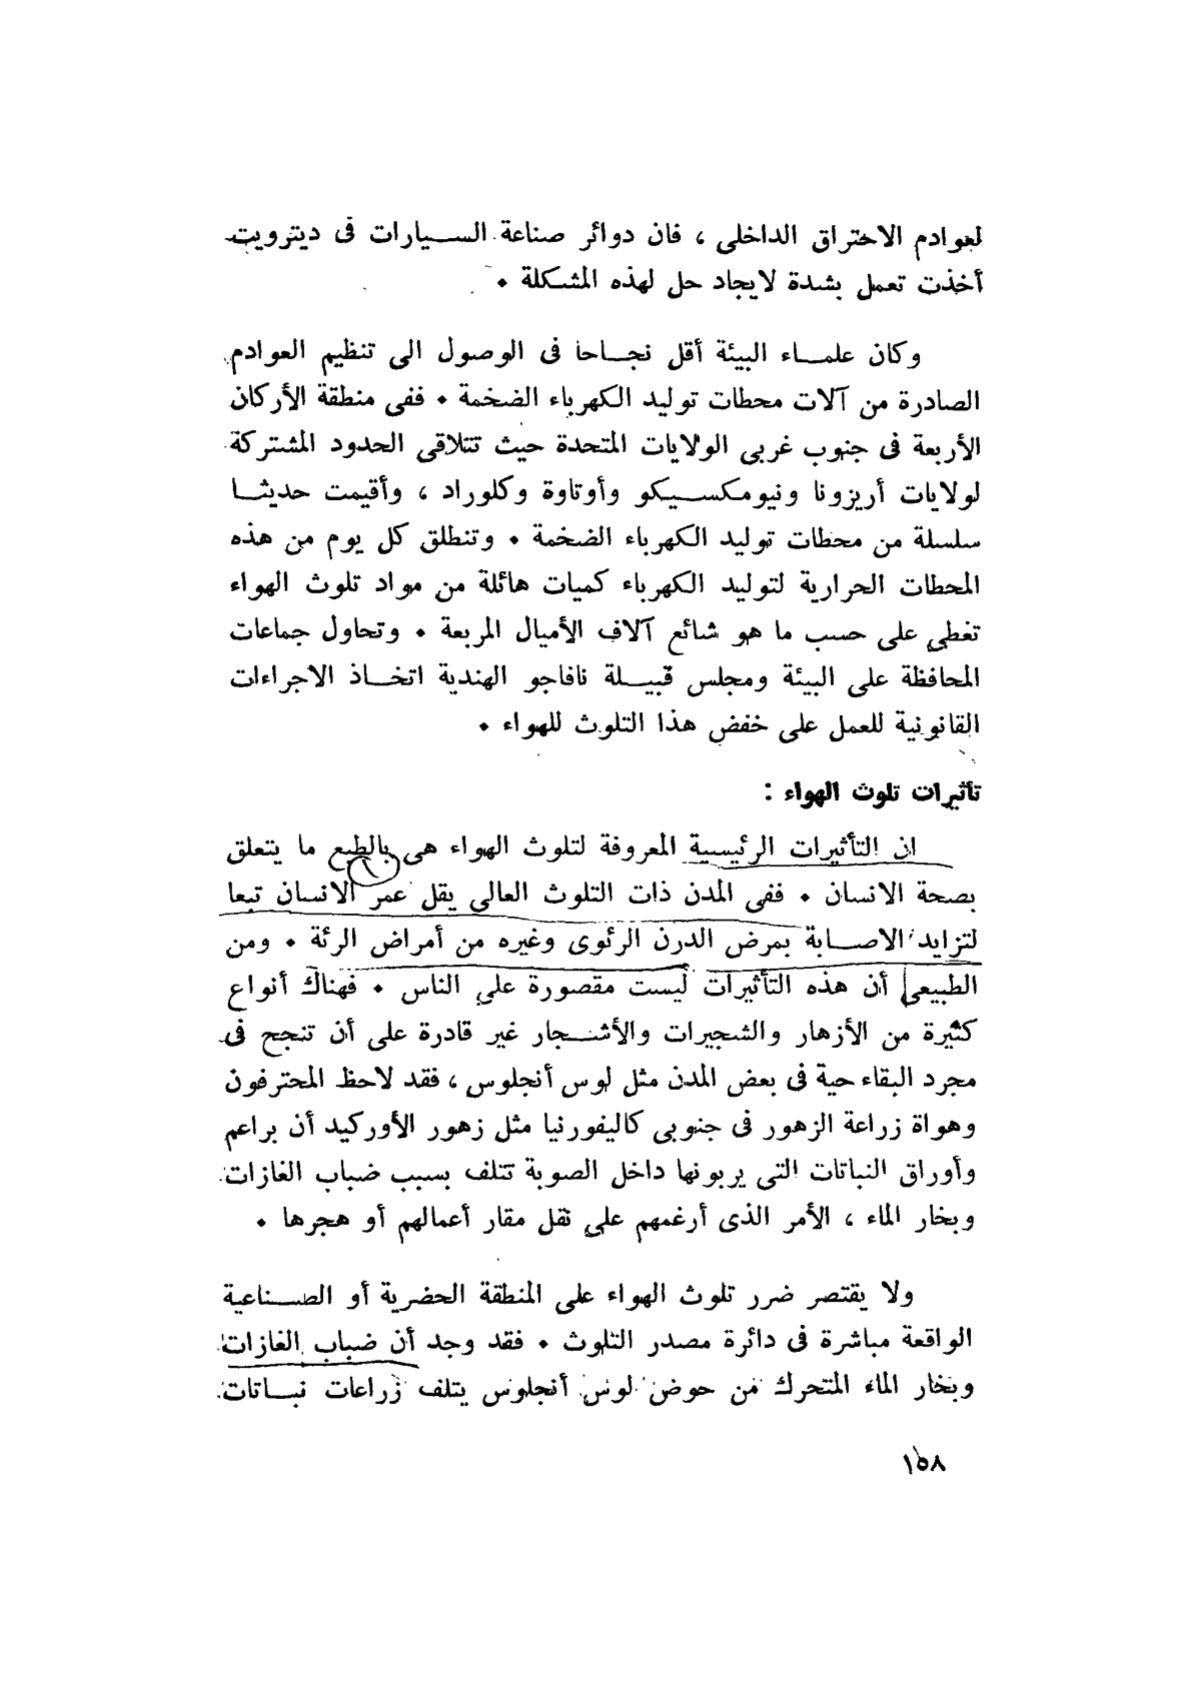 لعوادم الاحتراق الداخلى ، فان دوائر صناعة السيارات فى ديترويت
أخذت تعمل بشدة لايجاد حل لهذه المشكلة ٠
وكان علماء البيئة أقل نجاحا فى الوصول الى تنظيم العوادم
الصادرة من آلات محطات توليد الكهرباء الضخمة ٠ ففى منطقة الأركان
الأربعة فى جنوب غربى الولايات المتحدة حيث تتلاقى الحدود المشتركة
لولايات أريزونا ونيومكسيكو وأوتاوة وكلوراد ، وأقيمت حديثا
سلسلة من محطات توليد الكهرباء الضخمة ٠ وتنطلق كل يوم من هذه
المحطات الحرارية لتوليد الكهرباء كميات هائلة من مواد تلوث الهواء
تغطى على حسب ما هو شائع آلاف الأميال المربعة ٠ وتحاول جماعات
المحافظة على البيئة ومجلس قبيلة نافاجو الهندية اتخاذ الاجراءات
القانونية للعمل على خفض هذا التلوث للهواء ٠
تأثيرات تلوث الهواء :
ان التأثيرات الرئيسية المعروفة لتلوث الهواء هى بالطبع ما يتعلق
بصحة الانسان ٠ ففى المدن ذات التلوث العالى يقل عمر الانسان تبعا
لتزايد الاصابة بمرض الدرن الرئوى وغيره من أمراض الرئة ٠ ومن
الطبيعى أن هذه التأثيرات ليست مقصورة على الناس ٠ فهناك أنواع
كثيرة من الأزهار والشجيرات والأشجار غير قادرة على أن تنجح فى
مجرد البقاء حية فى بعض المدن مثل لوس أنجلوس ، فقد لاحظ المحترفون
وهواة زراعة الزهور فى جنوبى كاليفورنيا مثل زهور الأوركيد أن براعم
وأوراق النباتات التى يربونها داخل الصوبة تتلف بسبب ضباب الغازات
وبخار الماء ، الأمر الذى أرغمهم على نقل مقار أعمالهم أو هجرها ٠
ولا يقتصر ضرر تلوث الهواء على المنطقة الحضرية أو الصناعية
الواقعة مباشرة فى دائرة مصدر التلوث ٠ فقد وجد أن ضباب الغازات
وبخار الماء المتحرك من حوض لوس أنجلوس يتلف زراعات نباتات
١٥٨